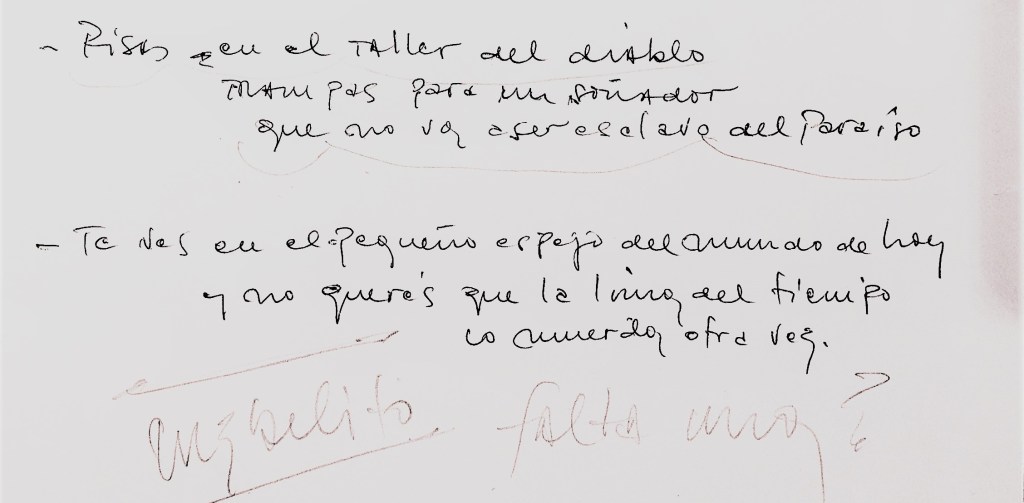 - Risas en el TAller del diablo
TRAMPAS para un soñador
que no va a ser esclavo del Paraíso
- Te ves en el pequeño espejo del mundo de hoy
y no querés que la lima del tiempo
lo muerda otra vez.
falta una?